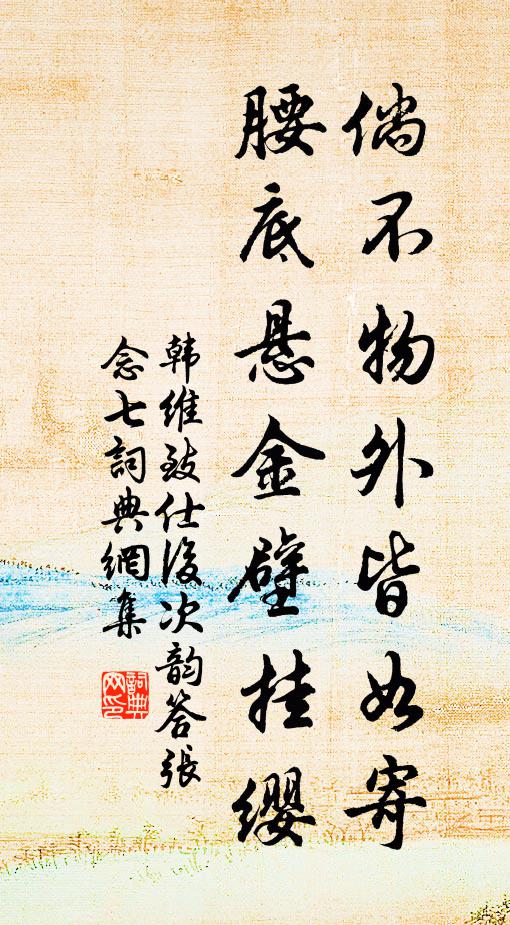 倘不物外皆如寄
腰底悬金壁挂缨
韩维致仕後次韵答張
念七詞典網集
詞典
网印